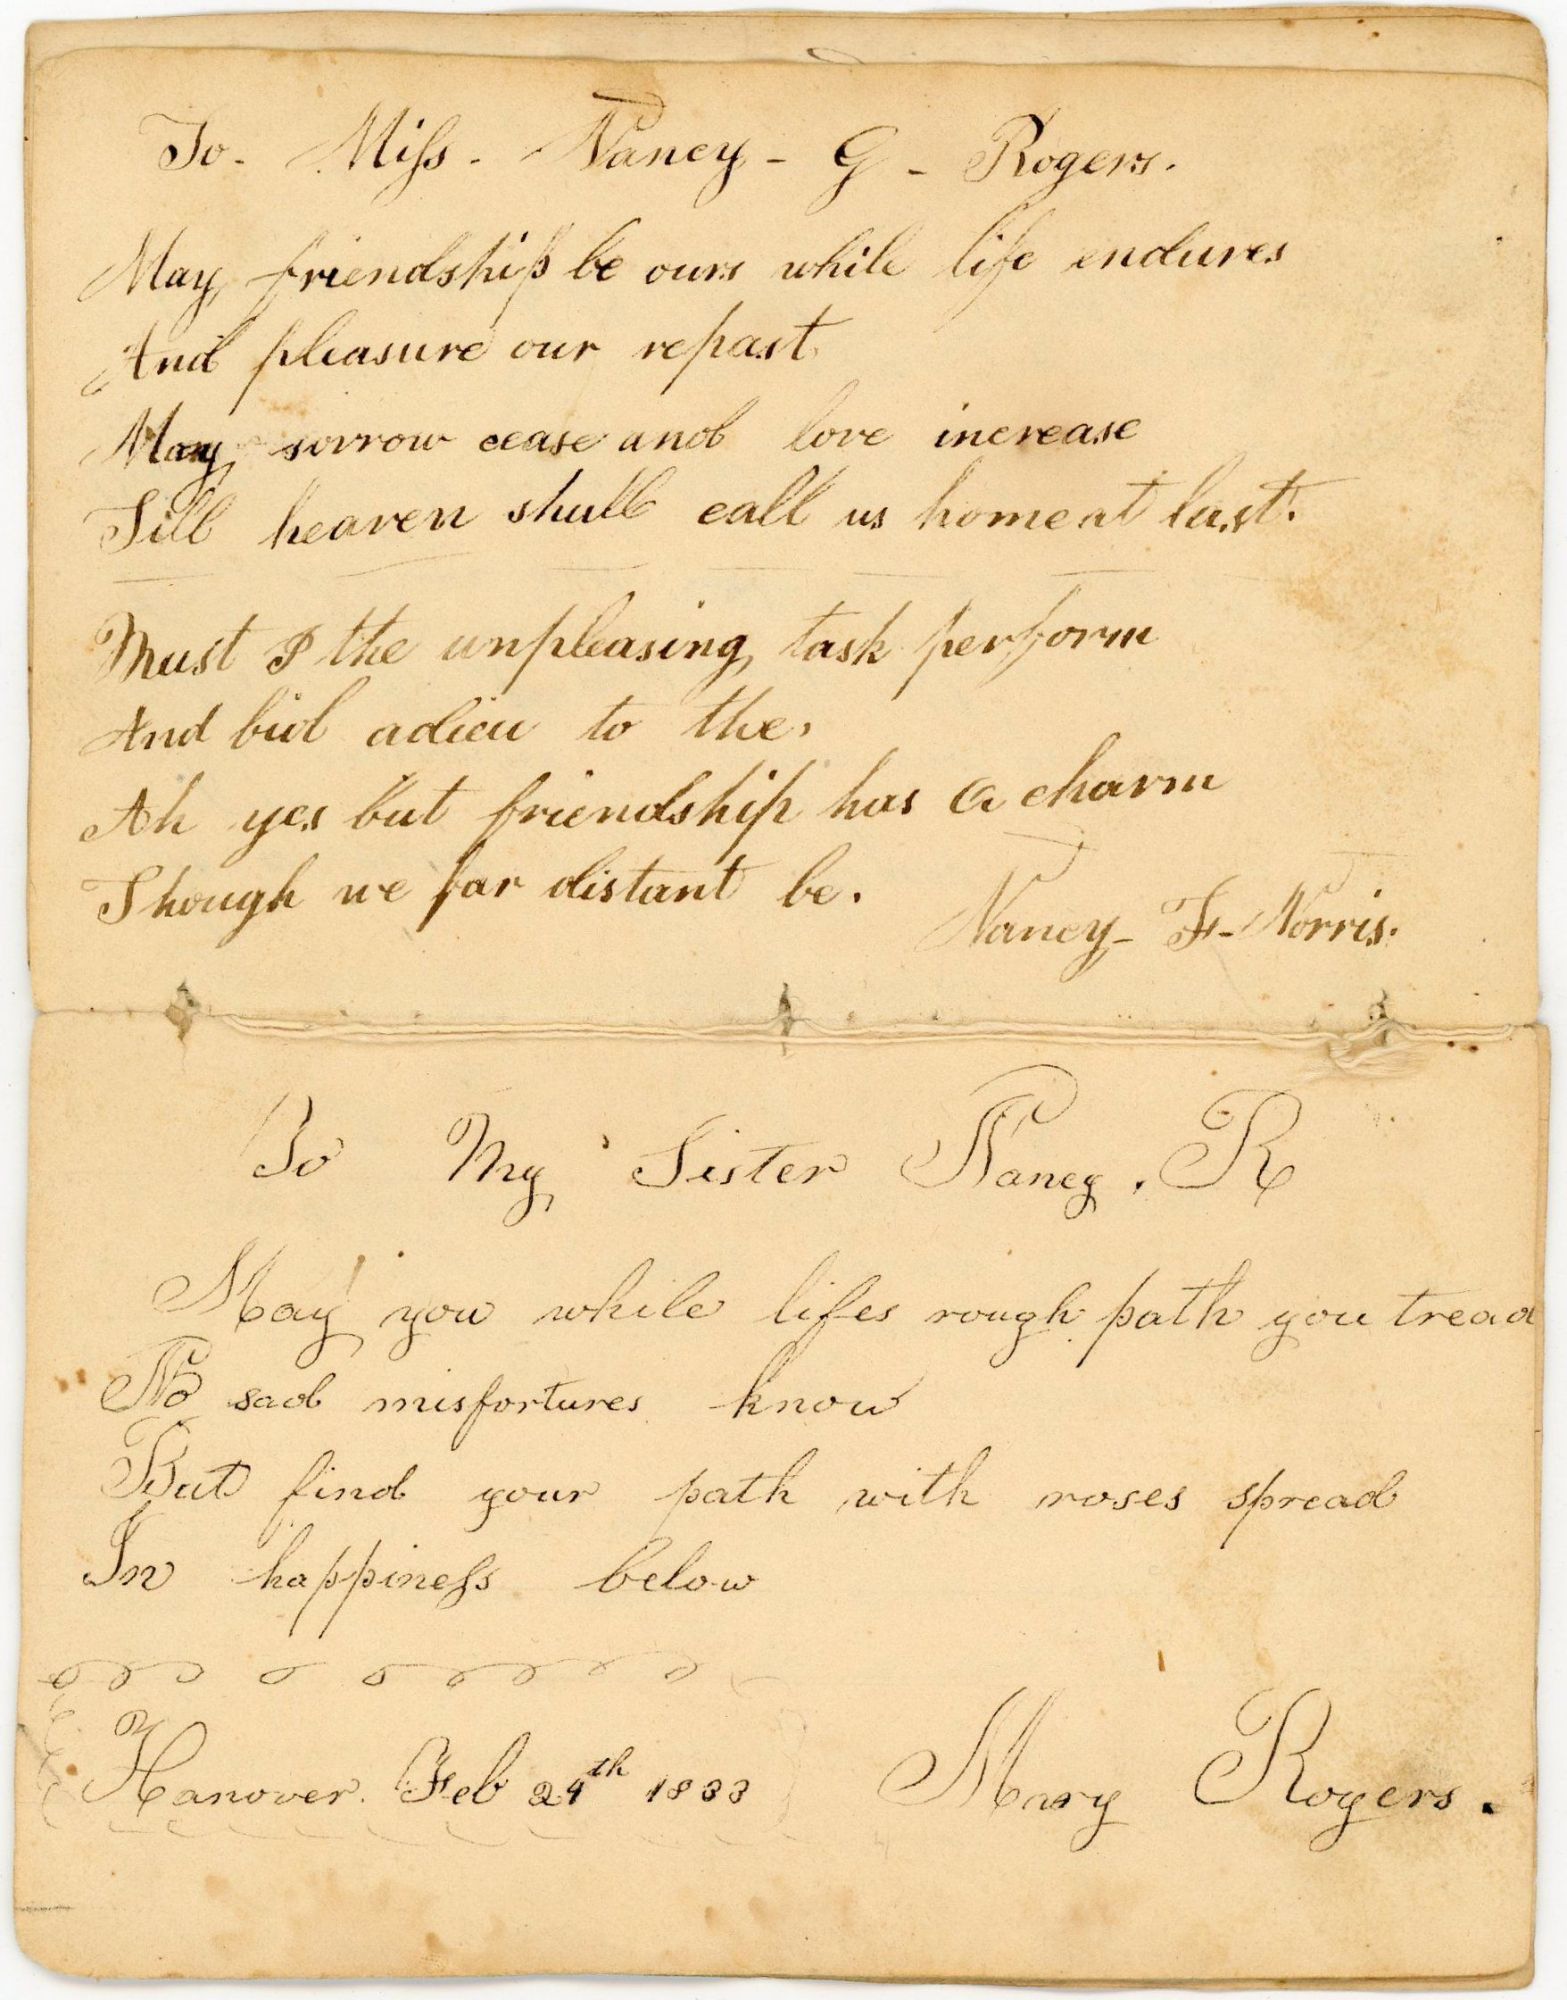 To - Miss - Nancy - G - Rogers.
May friendship be ours while life endures
And pleasure our repast
May sorrow cease and love increase
Till heaven shall call us home at last.
Must I the unpleasing task perform
And bid adieu to the,
Ah yes but friendship has a charm
Though we far distant be.
Nancy - F - Norris.
To My Sister Nancy . R
May you while lifes rough path you tread
No sad misfortures know
But find your path with roses spread
In happiness below
Hanover. Feb 24th 1833
Mary Rogers.